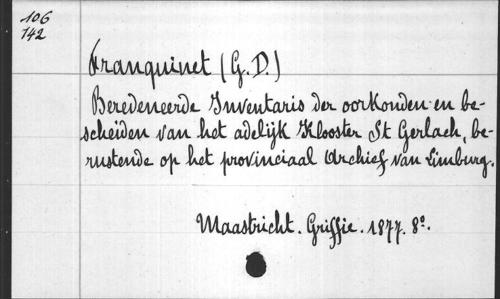 106
742
Franquinet (G. D.)
Beredeneerde Inventaris der oorkonden en be-
scheiden van het adelijk Klooster St Gerlach, be-
rustende op het provinciaal Archief van Limburg.
Maastricht. Griffie. 1877. 8º.